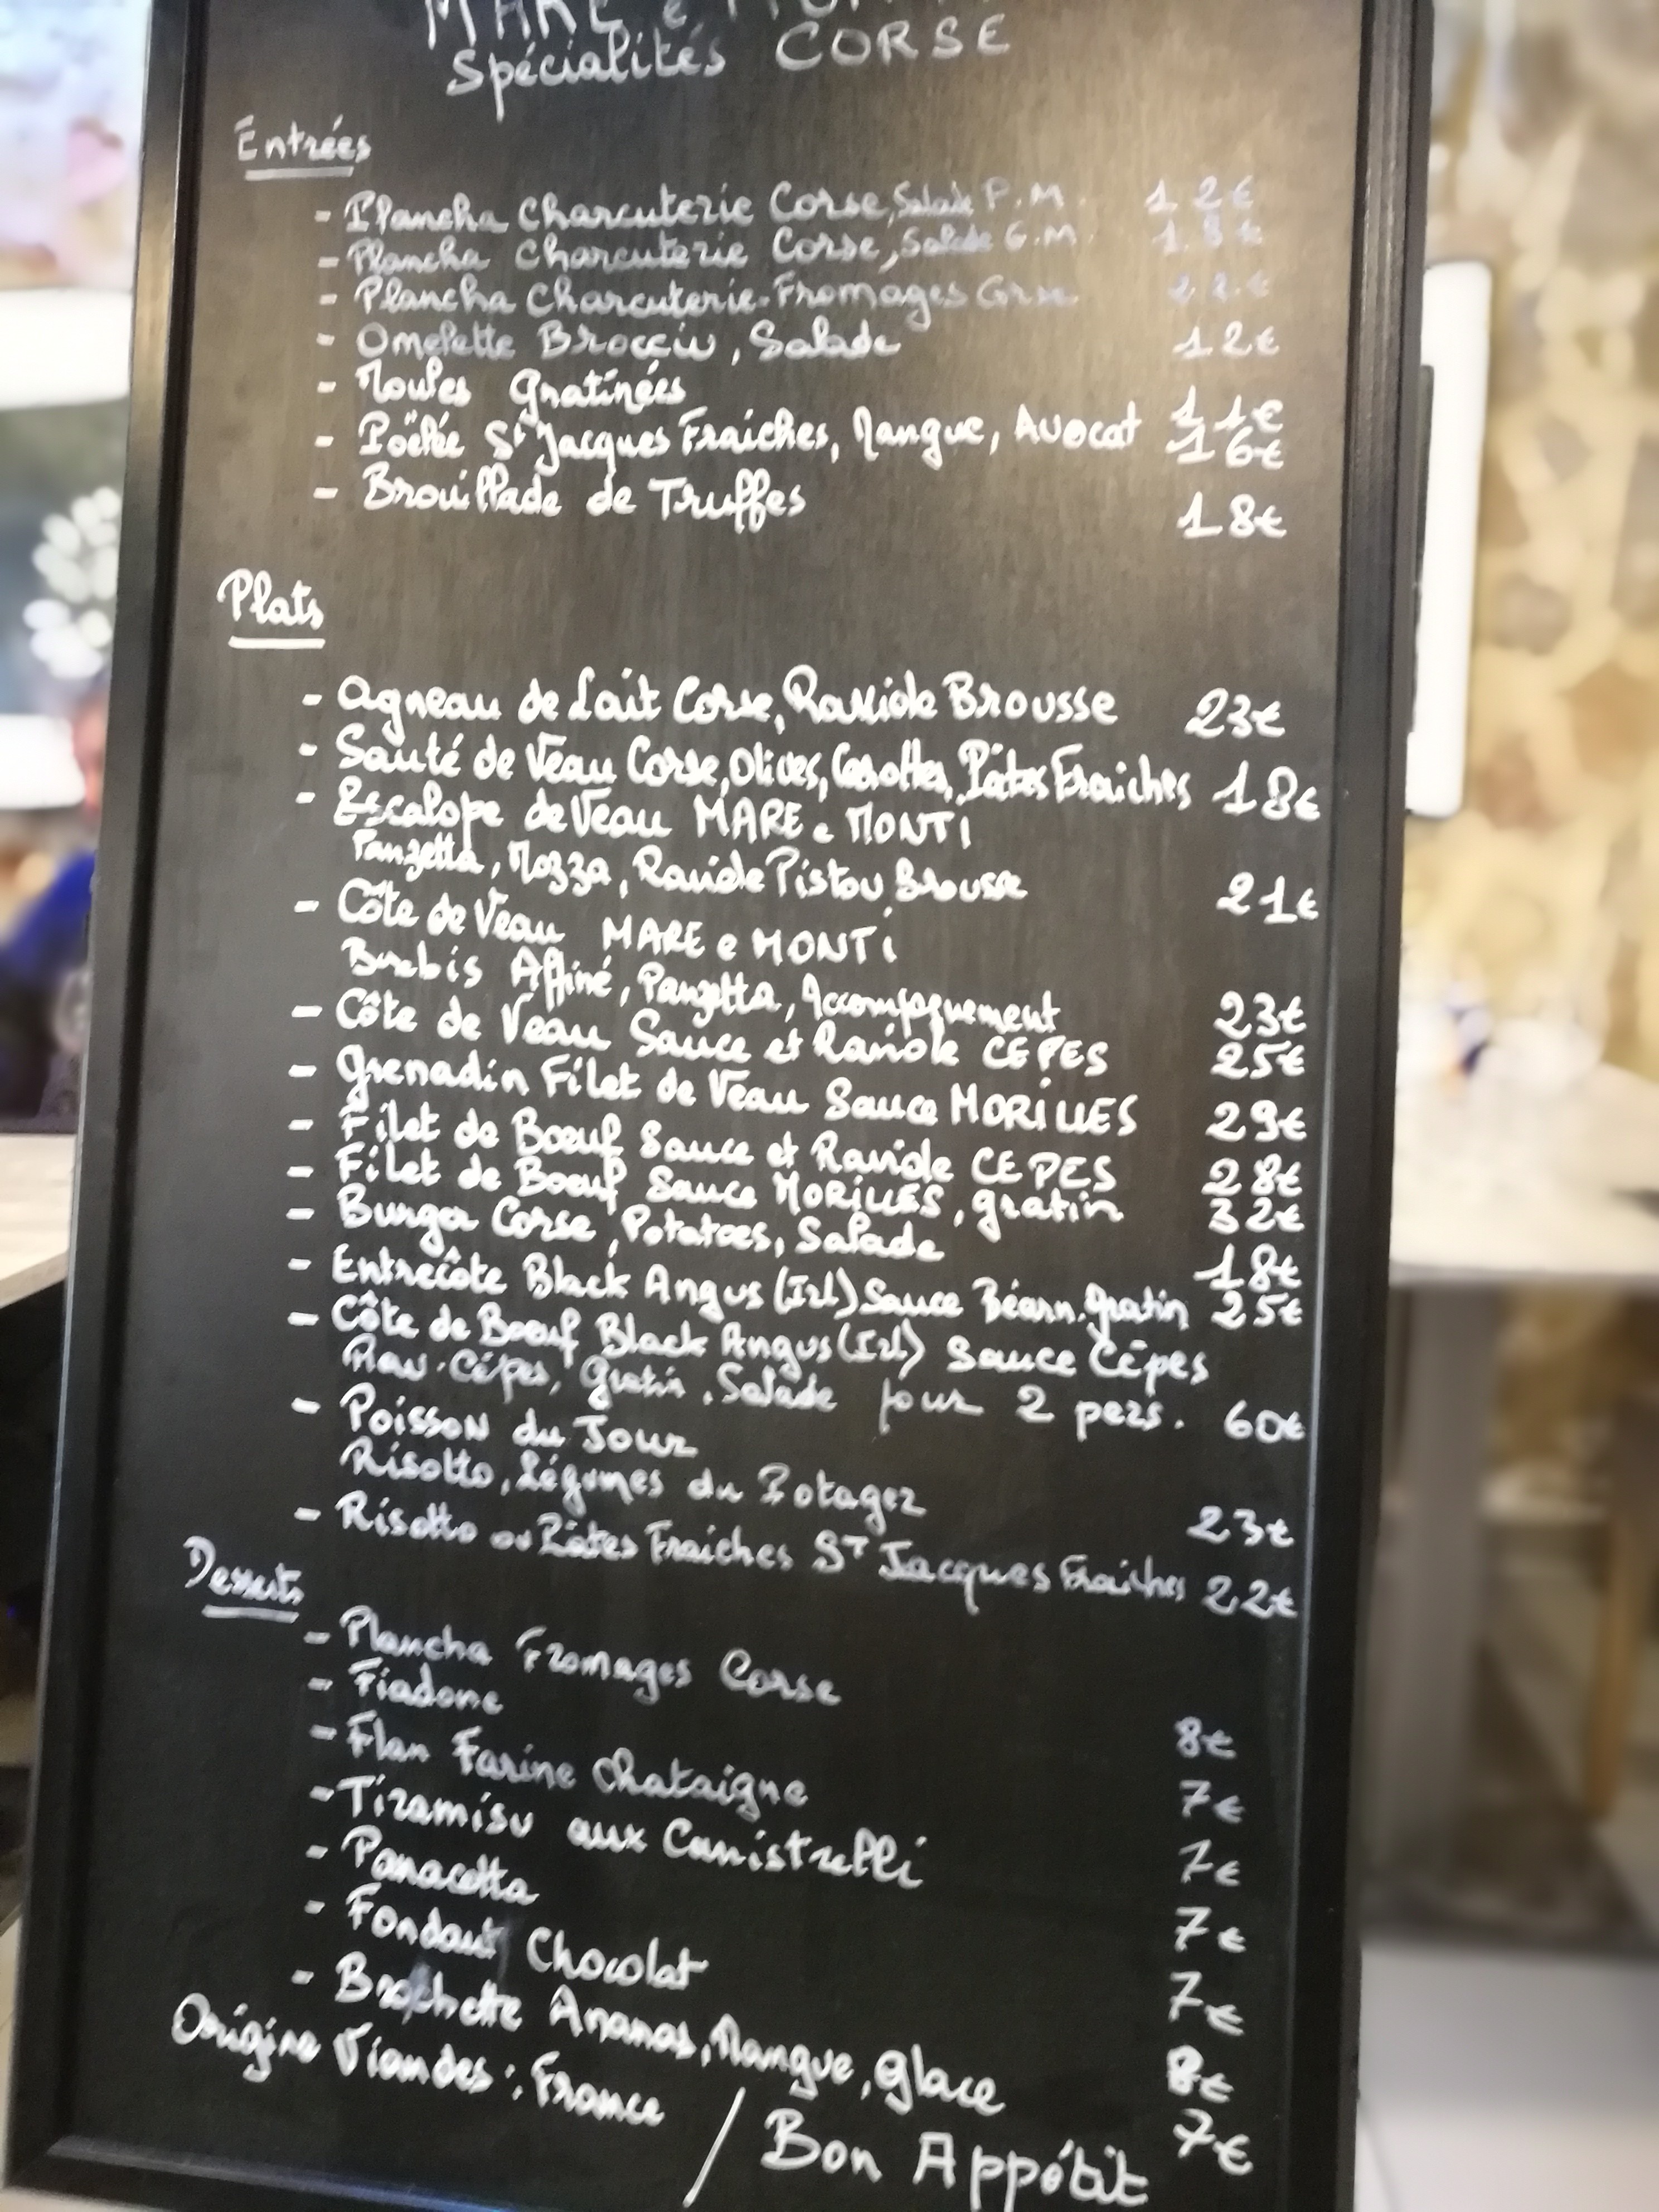 MARE e MONTI
Spécialités CORSE
Entrées
- Plancha Charcuterie Corse, Salade P.M. 12€
- Plancha Charcuterie Corse, Salade G.M. 18€
- Plancha Charcuterie-Fromages Corse 22€
- Omelette Brocciu, Salade 12€
- Moules Gratinées 11€
- Poëlée St Jacques Fraiches, Mangue, Avocat 16€
- Brouillade de Truffes 18€
Plats
- Agneau de Lait Corse, Raviole Brousse 23€
- Sauté de Veau Corse, Olives, Carottes, Pâtes Fraiches 18€
- Escalope de Veau MARE e MONTI
Panzetta, Mozza, Raviole Pistou Brousse 21€
- Côte de Veau MARE e MONTI
Brebis Affiné, Panzetta, Accompagnement 23€
- Côte de Veau Sauce et Raviole CEPES 25€
- Grenadin Filet de Veau Sauce MORILLES 29€
- Filet de Boeuf Sauce et Raviole CEPES 28€
- Filet de Boeuf Sauce MORILLES, gratin 32€
- Burger Corse, Potatoes, Salade 18€
- Entrecôte Black Angus (Irl) Sauce Béarn. gratin 25€
- Côte de Boeuf Black Angus (Irl) Sauce Cêpes
Rav. Cêpes, Gratin, Salade pour 2 pers. 60€
- Poisson du Jour
Risotto, Légumes du Potager 23€
- Risotto ou Pâtes Fraiches ST Jacques Fraiches 22€
Desserts
- Plancha Fromages Corse 8€
- Fiadone 7€
- Flan Farine Chataigne 7€
- Tiramisu aux Canistrelli 7€
- Panacotta 7€
- Fondant Chocolat 8€
- Brochette Ananas, Mangue, glace 7€
Origine Viandes : France / Bon Appétit